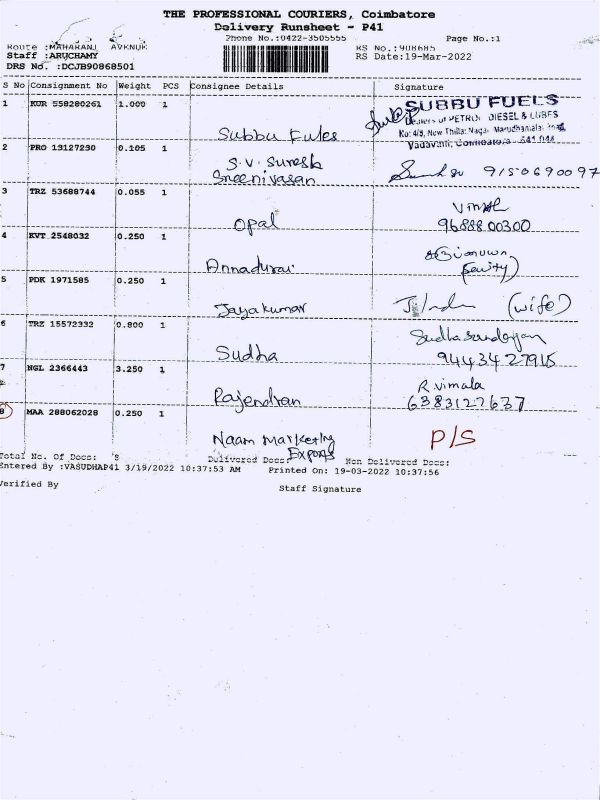 THE PROFESSIONAL COURIERS, Coimbatore
Delivery Runsheet - P41
Phone No.:0422-3505555 Page No.:1
Route :MAHARANI AVKNUE RS No.:908685
Staff :ARUCHAMY RS Date:19-Mar-2022
DRS No. :DCJB90868501
S No Consignment No Weight PCS Consignee Details Signature
1 KUR 558280261 1.000 1 Subbu Fules SUBBU FUELS
Dealers of PETROL DIESEL & LUBES
2 PRO 13127230 0.105 1 S.V. Suresh
Sreenivasan 9150690097
3 TRZ 53688744 0.055 1 Opal
9688800300
4 KVT 2548032 0.250 1 Annadurai
5 PDK 1971585 0.250 1 Jayakumar (wife)
6 TRZ 15572332 0.800 1 Sudha
7 NGL 2366443 3.250 1 Rajendran R.vimala
6383127637
8 MAA 288062028 0.250 1 Naam Marketing
Exports P/S
Total No. Of Docs: 8 Delivered Docs: Non Delivered Docs:
Entered By :VASUDHAP41 3/19/2022 10:37:53 AM Printed On: 19-03-2022 10:37:56
Verified By Staff Signature